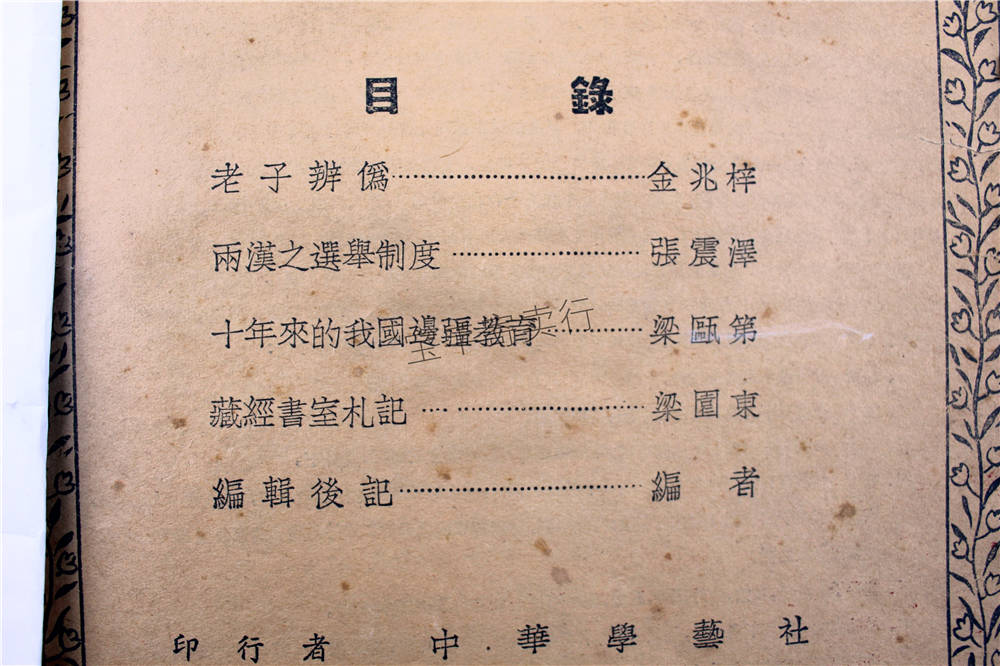 目錄
老子辨僞……………………………金兆梓
兩漢之選舉制度……………………張震澤
十年來的我國邊疆教育……………梁甌第
藏經書室札記………………………梁園東
編輯後記……………………………編者
印行者 中華學藝社